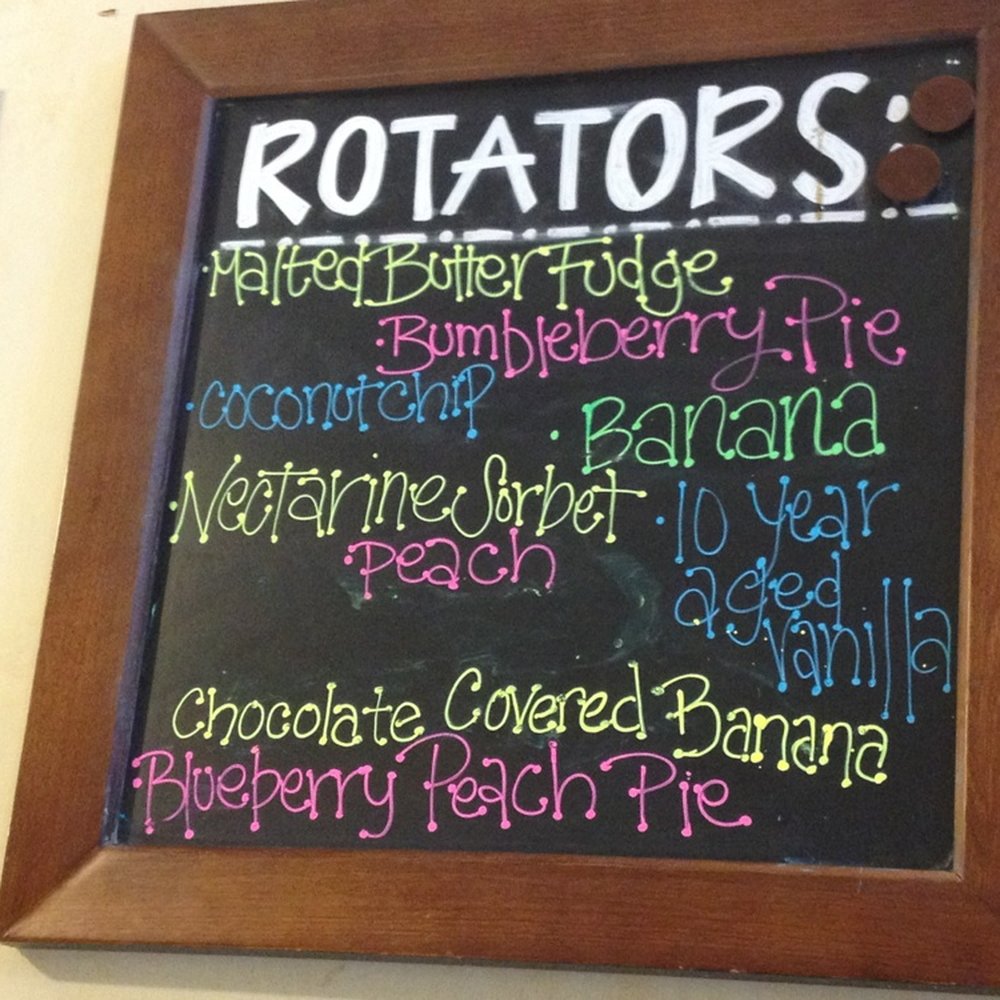 ROTATORS:
·Malted Butter Fudge
·Bumbleberry Pie
·coconut chip
·Banana
·Nectarine Sorbet
·10 year
aged
vanilla
·peach
Chocolate Covered Banana
·Blueberry Peach Pie